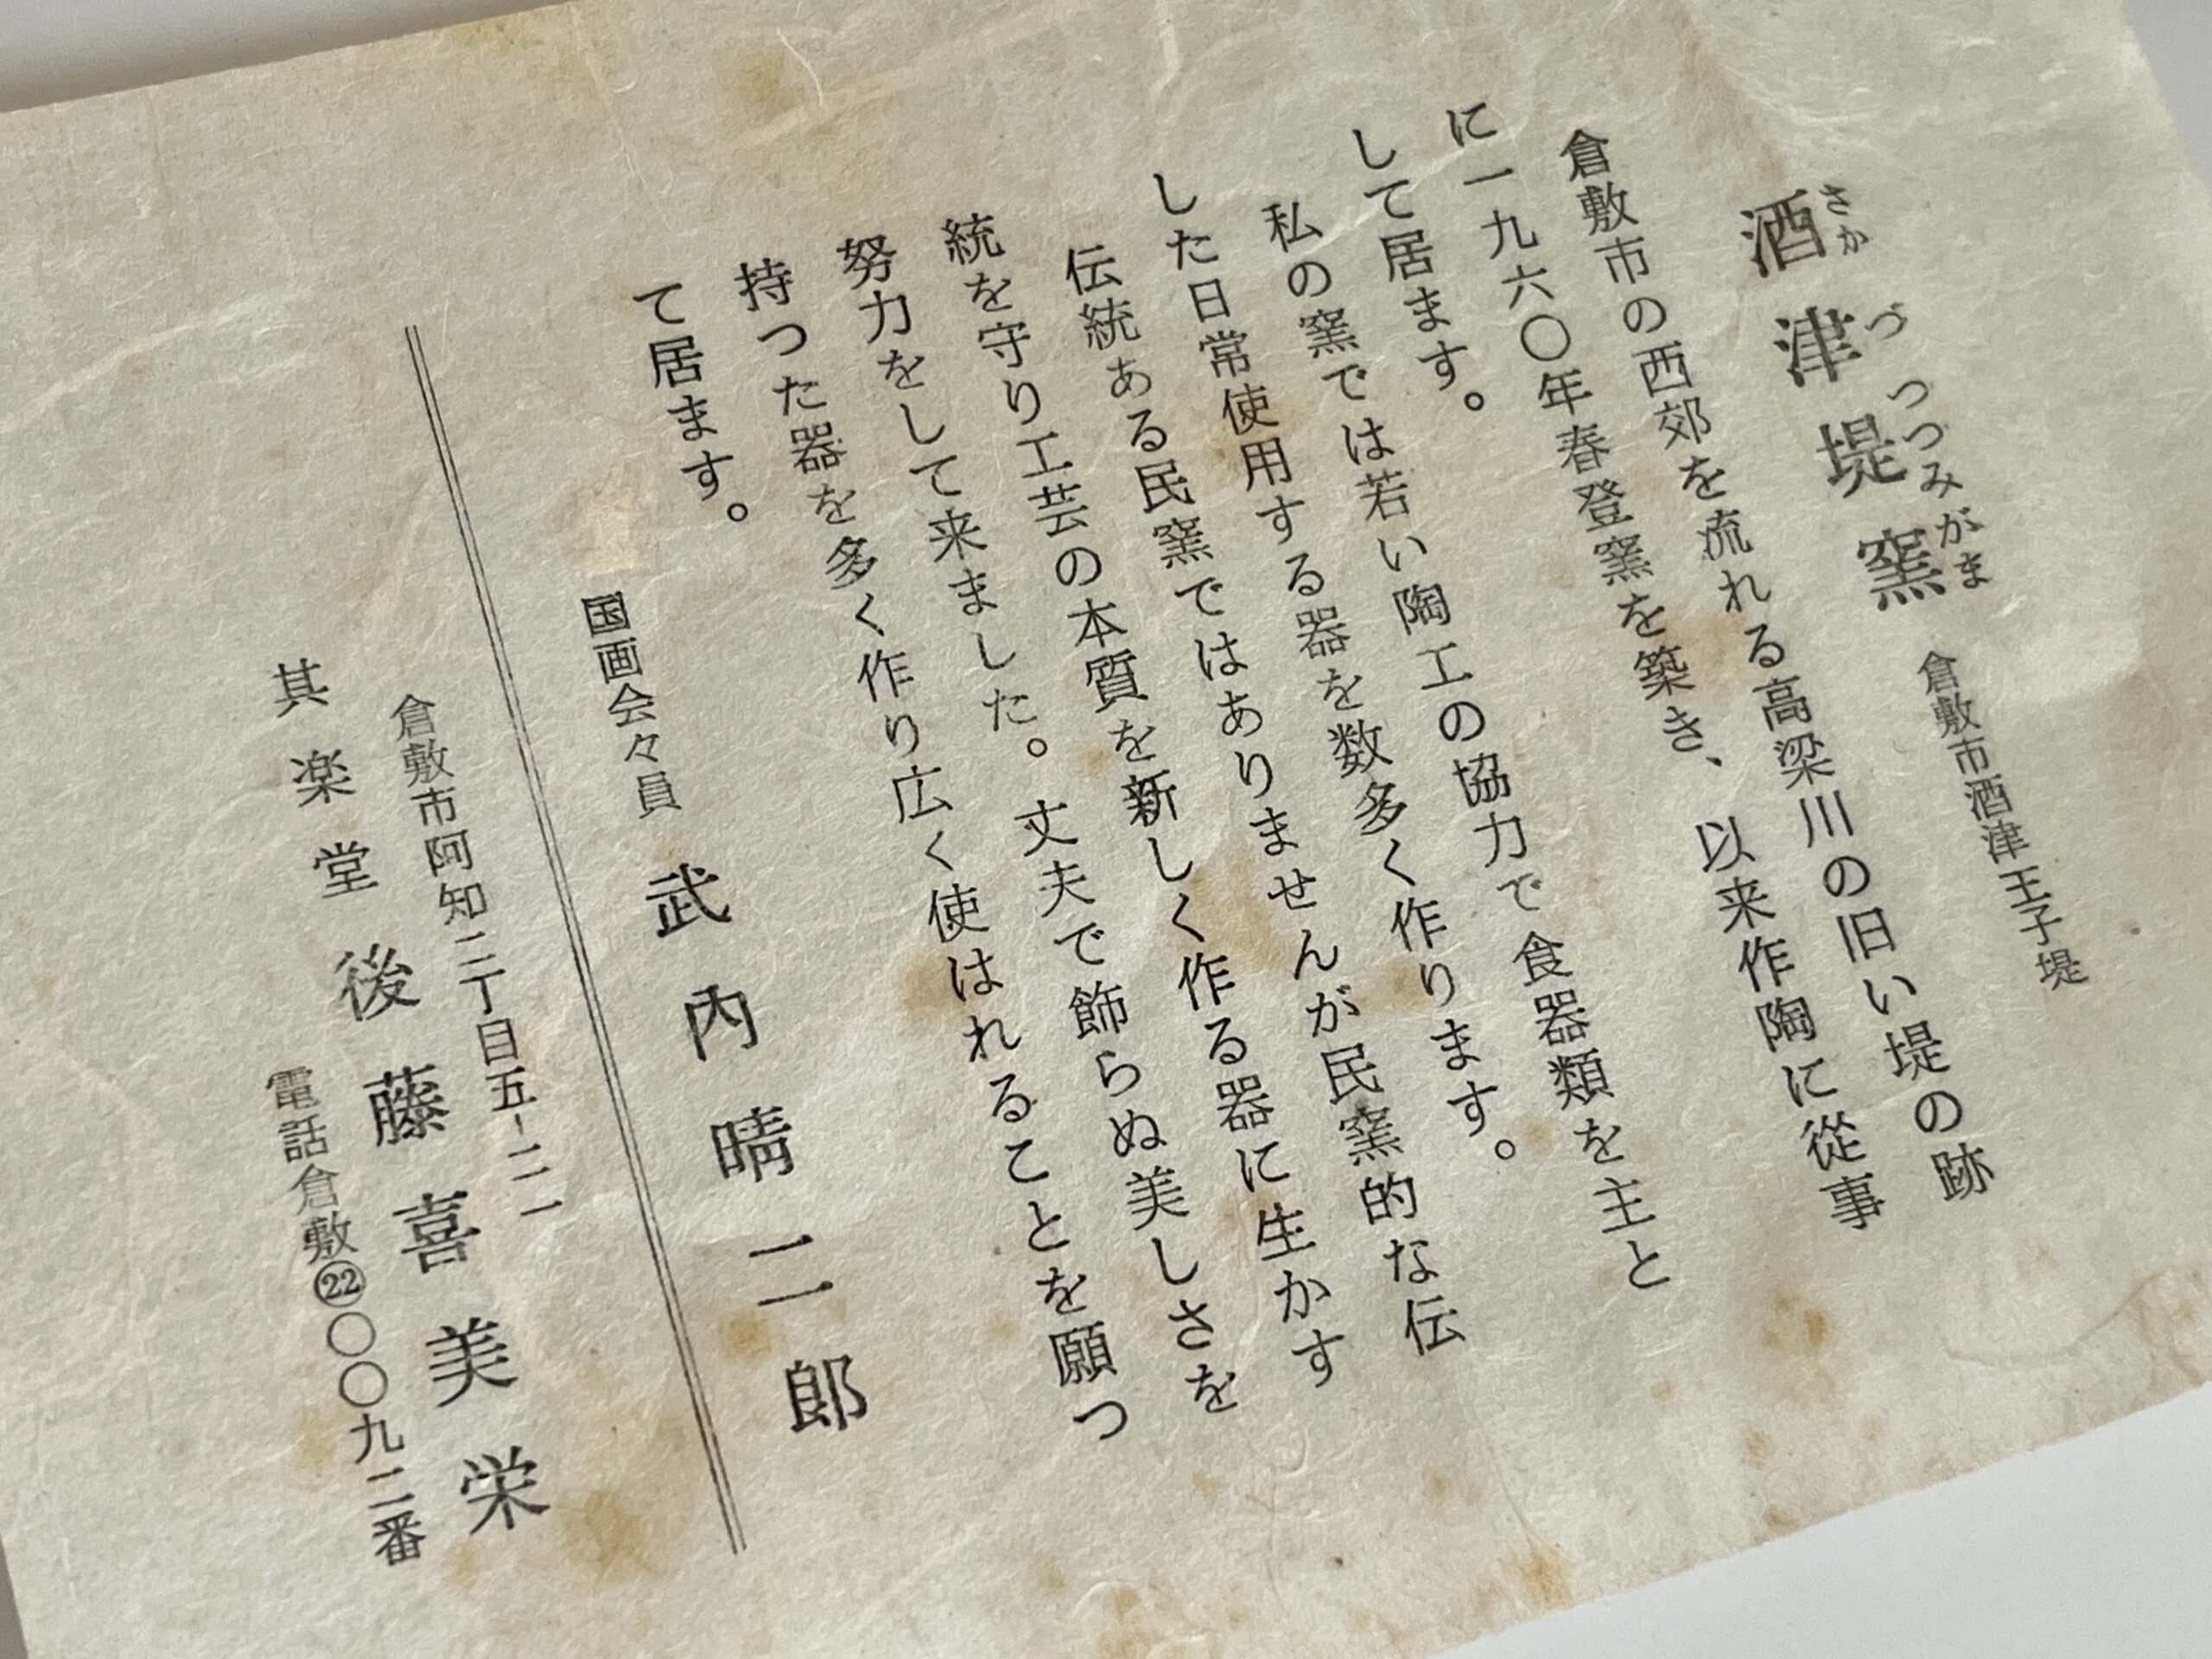 酒津堤窯 倉敷市酒津王子堤
さかづつつみがま
倉敷市の西郊を流れる高梁川の旧い堤の跡
に一九六〇年春登窯を築き、以来作陶に従事
して居ます。
私の窯では若い陶工の協力で食器類を主と
した日常使用する器を数多く作ります。
伝統ある民窯ではありませんが民窯的な伝
統を守り工芸の本質を新しく作る器に生かす
努力をして来ました。丈夫で飾らぬ美しさを
持つた器を多く作り広く使はれることを願つ
て居ます。
国画会々員 武内晴二郎
倉敷市阿知二丁目五-二一
其楽堂 後藤喜美栄
電話倉敷㉒〇〇九二番